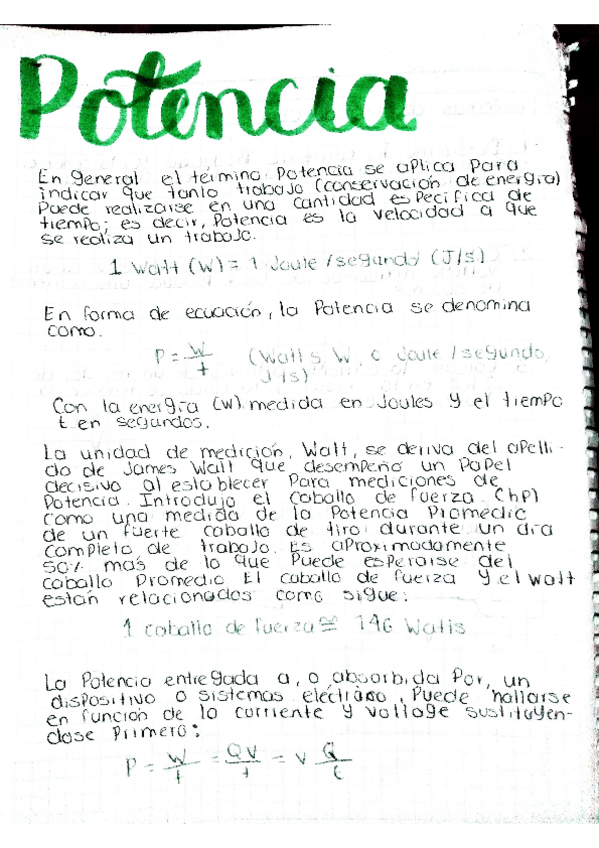 Potencia
En general el termino Potencia se aplica Para
indicar que tanto trabajo (conservación de energía)
Puede realizarse en una cantidad especifica de
tiempo; es decir, Potencia es la velocidad a que
se realiza un trabajo.
1 Watt (W) = 1 Joule / segundo (J/s)
En forma de ecuación, la Potencia se denomina
como.
P = W/t (Watts, W, o Joule / segundo,
J/s)
Con la energía (W) medida en Joules y el tiempo
t en segundos.
La unidad de medición, Watt, se deriva del apelli-
do de James Watt que desempeño un Papel
decisivo al establecer Para mediciones de
Potencia. Introdujo el Caballo de fuerza (hp)
como una medida de la Potencia Promedio
de un fuerte caballo de tiro durante un día
completo de trabajo. Es aproximadamente
50% mas de lo que Puede esperarse del
caballo Promedio. El caballo de fuerza y el watt
están relacionados como sigue:
1 caballo de fuerza ≅ 746 Watts
La Potencia entregada a, o absorbida Por, un
dispositivo o sistemas eléctrico, Puede hallarse
en función de la corriente y voltage sustituyen-
dose Primero:
P = W/t = QV/t = V Q/t